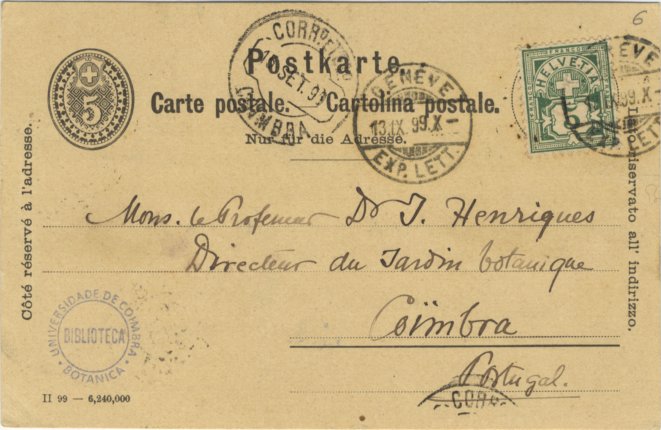 6
CORREIO
SET. 9
COIMBRA
Postkarte.
GENÈVE
13.IX.99.X
EXP. LETT.
FRANCO
HELVETIA
5
GENÈVE
IX.99.X
EXP. LETT.
5
Carte postale. Cartolina postale.
Nur für die Adresse.
Côté réservé à l'adresse.
riservato all' indirizzo.
Mons. le Professeur Dr J. Henriques
Directeur du Jardin botanique
Coïmbra
Portugal.
UNIVERSIDADE DE COIMBRA
BIBLIOTECA
BOTANICA
COR
II 99 — 6,240,000